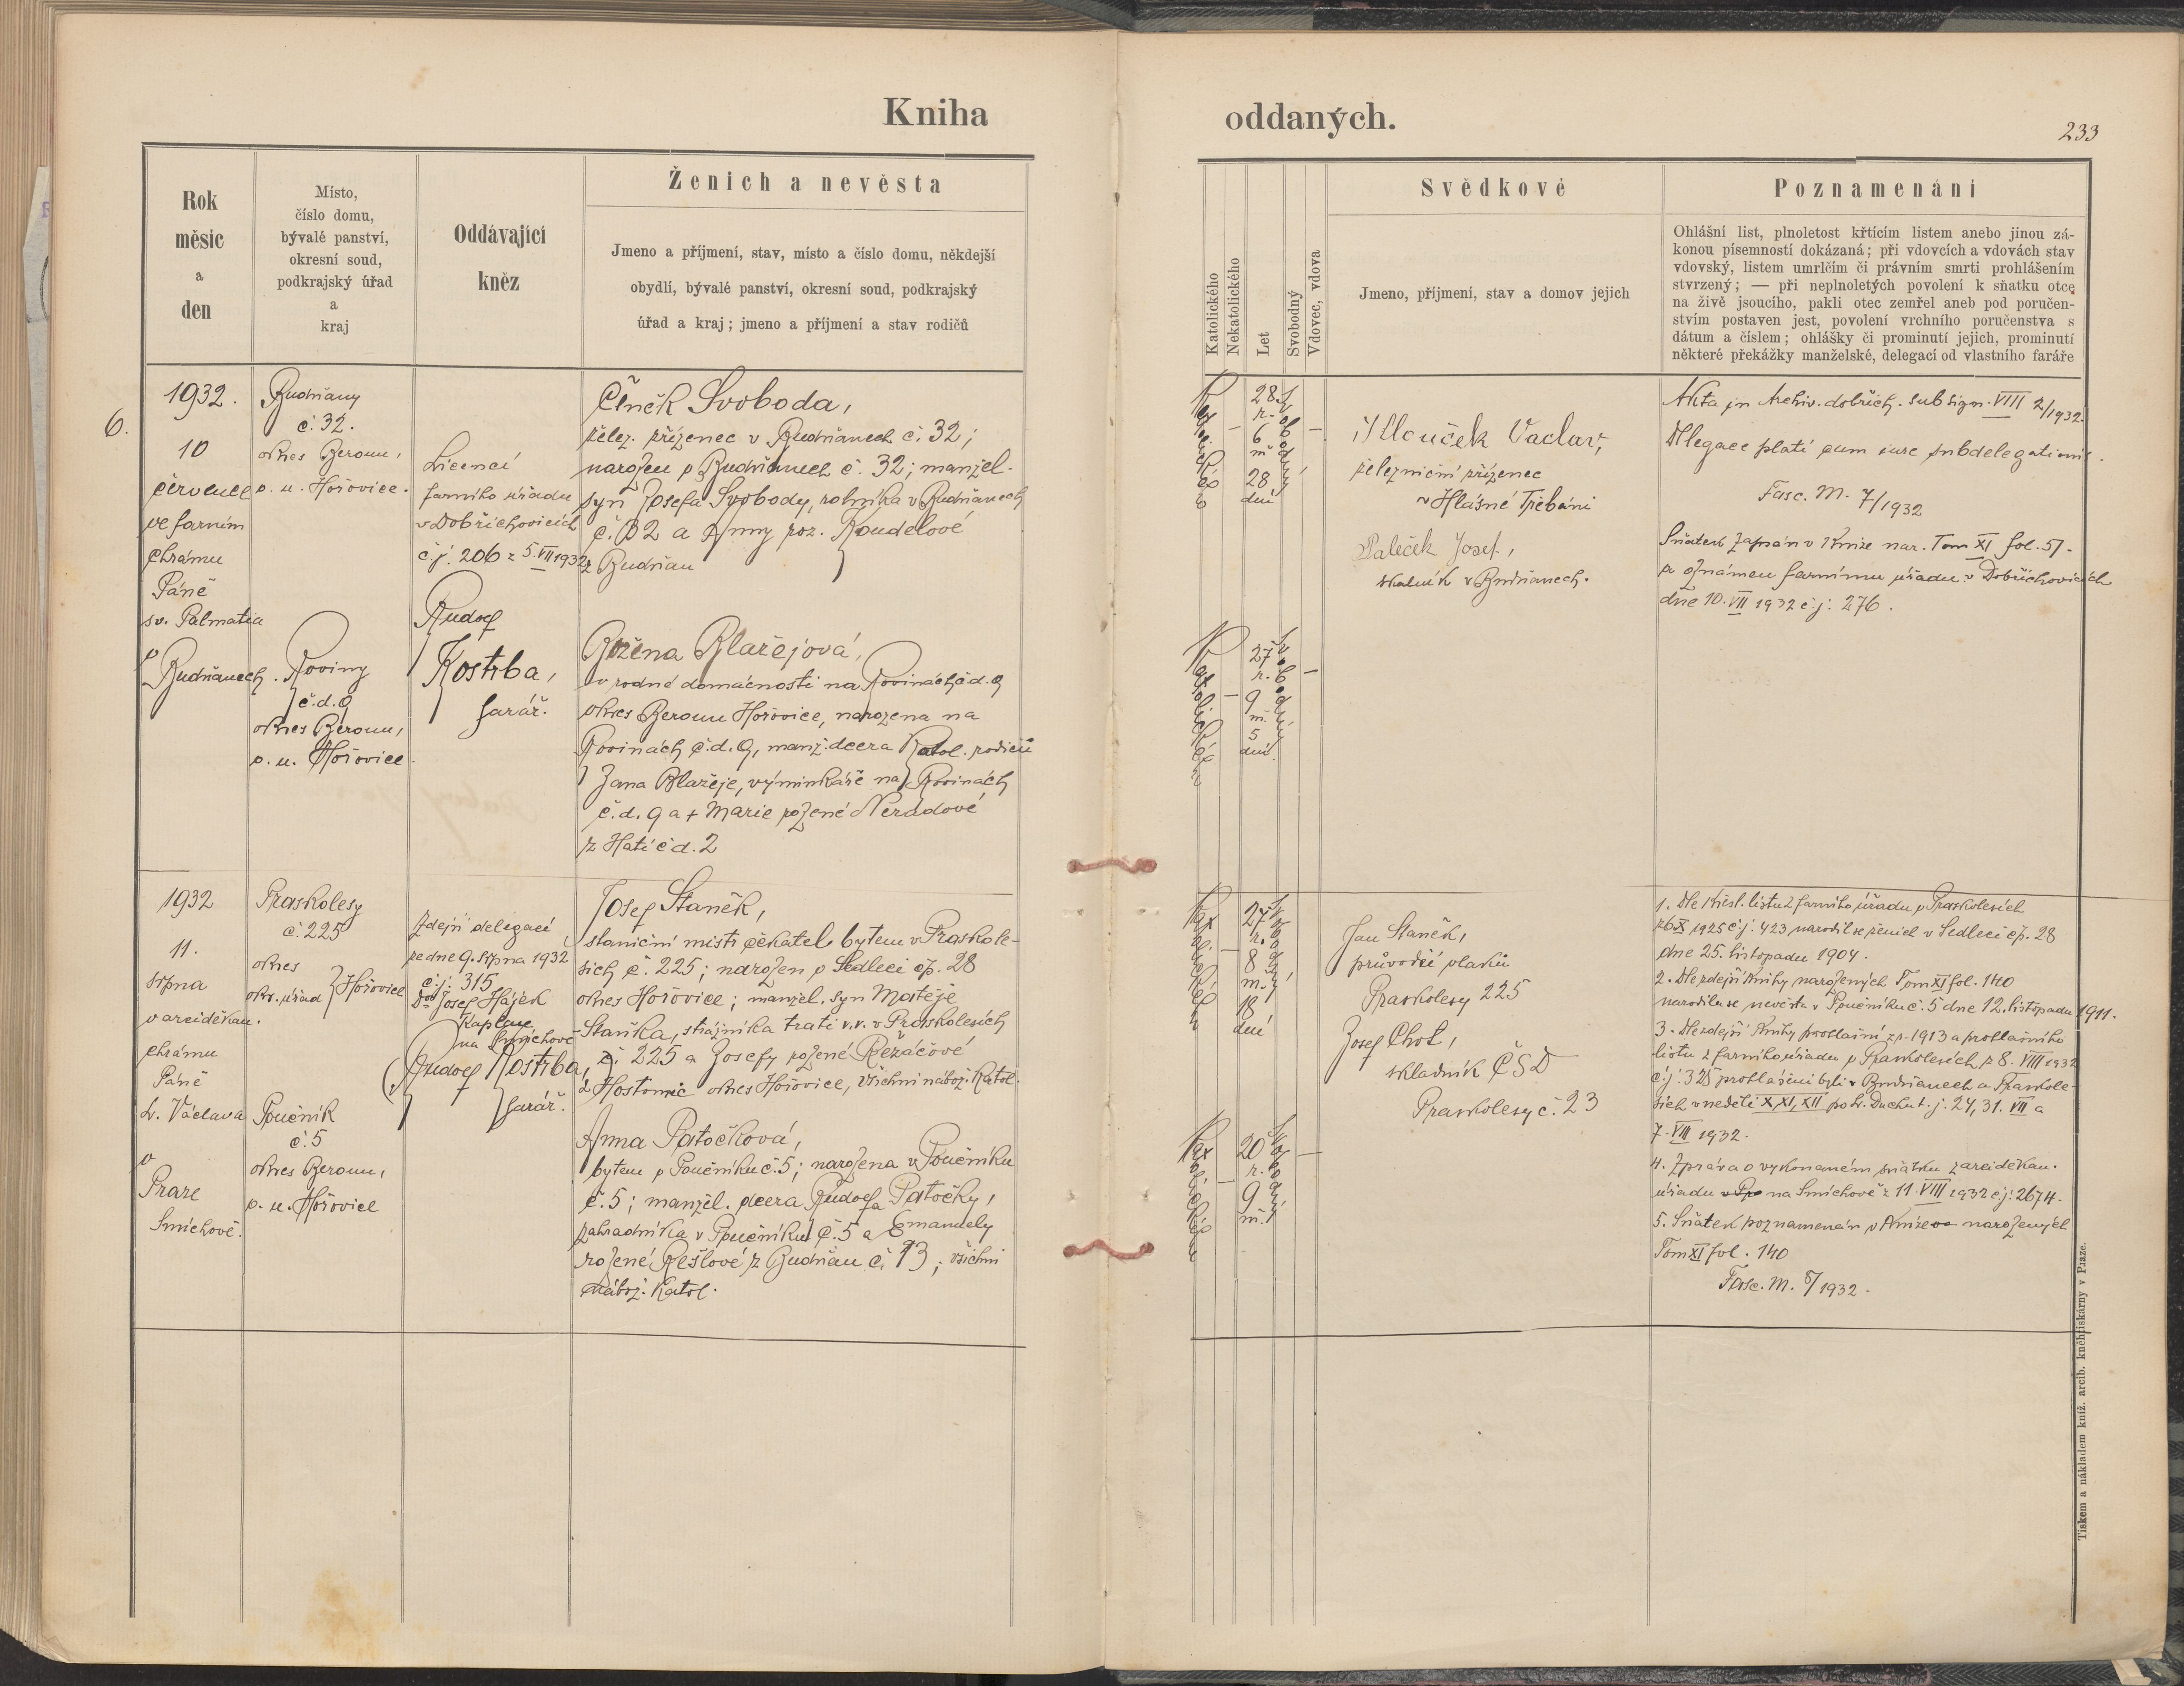 Kniha
oddaných.
233
Rok
měsíc
a
den
Místo,
číslo domu,
bývalé panství,
okresní soud,
podkrajský úřad
a
kraj
Oddávající
kněz
Ženich a nevěsta
Jmeno a příjmení, stav, místo a číslo domu, někdejší
obydlí, bývalé panství, okresní soud, podkrajský
úřad a kraj; jmeno a příjmení a stav rodičů
Katolického
Nekatolického
Let
Svobodný
Vdovec, vdova
Svědkové
Jmeno, příjmení, stav a domov jejich
Poznamenání
Ohlášní list, plnoletost křtícím listem anebo jinou zá-
konou písemností dokázaná; při vdovcích a vdovách stav
vdovský, listem umrlčím či právním smrti prohlášením
stvrzený; — při neplnoletých povolení k sňatku otce
na živě jsoucího, pakli otec zemřel aneb pod poručen-
stvím postaven jest, povolení vrchního poručenstva s
dátum a číslem; ohlášky či prominutí jejich, prominutí
některé překážky manželské, delegací od vlastního faráře
6.
1932.
10
července
ve farním
chrámu
Páně
sv. Palmatia
v
Budňanech.
Budňany
č. 32.
okres Beroun,
p. u. Hořovice.
Roviny
č. d. 9
okres Beroun,
p. u. Hořovice.
Licencí
farního úřadu
v Dobřichovicích
č.j. 206 z 5. VII 1932
Rudolf
Kostrba,
farář.
Čeněk Svoboda,
želez. zřízenec v Budňanech č. 32;
narozen v Budňanech č. 32; manžel.
syn Josefa Svobody, rolníka v Budňanech
č. 32 a Anny roz. Koudelové
z Budňan
Božena Blažejová,
v rodné domácnosti na Rovinách č.d. 9
okres Beroun Hořovice, narozena na
Rovinách č.d. 9, manž. dcera katol. rodičů
Jana Blažeje, výminkáře na Rovinách
č.d. 9 a + Marie rozené Neradové
z Hatí č d. 2
Katolické
28 r.
6 m.
28 dní
Svobodný
Katolické
27 r.
9 m.
5 dní
Svobodný
Klouček Vaclav,
železniční zřízenec
v Hlásné Třebáni
Paleček Josef,
skalník v Budňanech.
Akta in Archiv. dobřich. sub sign. VIII 2/1932.
Dlegace platí cum iure subdelegationis.
Fasc. M. 7/1932
Sňatek zapsán v knize nar. Tom XI fol. 57.
a oznámen farnímu úřadu v Dobřichovicích
dne 10. VII 1932 č.j. 276.
1932
11.
srpna
v arciděkan.
chrámu
Páně
sv. Václava
v
Praze
Smíchově.
Praskolesy
č. 225
okres
okr. úřad Hořovice
Poučník
č. 5
okres Beroun,
p. u. Hořovice
Zdejší delegací
ze dne 9. srpna 1932
č.j. 315
Josef Hájek
kaplan
na Smíchově
Rudolf Kostrba,
farář.
Josef Staněk,
staniční mistr čekatel bytem v Praskole-
sích č. 225; narozen v Sedleci čp. 28
okres Hořovice; manžel. syn Matěje
Staňka, strážníka trati v.v. v Praskolesích
č. 225 a Josefy rozené Řezáčové
z Hostomic okres Hořovice, všichni nábož. katol.
Anna Patočková,
bytem v Poučníku č. 5; narozena v Poučníku
č. 5; manžel. dcera Rudolfa Patočky,
zahradníka v Poučníku č. 5 a Emanuely
rozené Rešlové z Budňan č. 13; všichni
nábož. katol.
Katolické
27 r.
8 m.
18 dní
Svobodný
Katolické
20 r.
9 m.
Svobodná
Jan Staněk,
průvodčí vlaků
Praskolesy 225
Josef Chot,
skladník ČSD
Praskolesy č. 23
1. Dle křest. listu z farního úřadu v Praskolesích
z 6. X 1925 č.j. 423 narodil se ženich v Sedleci čp. 28
dne 25. listopadu 1904.
2. Dle zdejší knihy narozených Tom XI fol. 140
narodila se nevěsta v Poučníku č. 5 dne 12. listopadu 1911.
3. Dle zdejší knihy prohlášní z r. 1913 a prohlašního
listu z farního úřadu v Praskolesích z 8. VIII 1932
č.j. 328 prohlášeni byli v Budňanech a Praskole-
sích v neděli X, XI, XII po sv. Duchu t. j. 24, 31. VII a
7. VIII 1932.
4. Zpráva o vykonaném sňatku z arciděkan.
úřadu v Pr na Smíchově z 11. VIII 1932 č.j. 2674.
5. Sňatek poznamenán v knize narozených
Tom XI fol. 140
Fasc. M. 8/1932.
Tiskem a nákladem kníž. arcib. knihtiskárny v Praze.